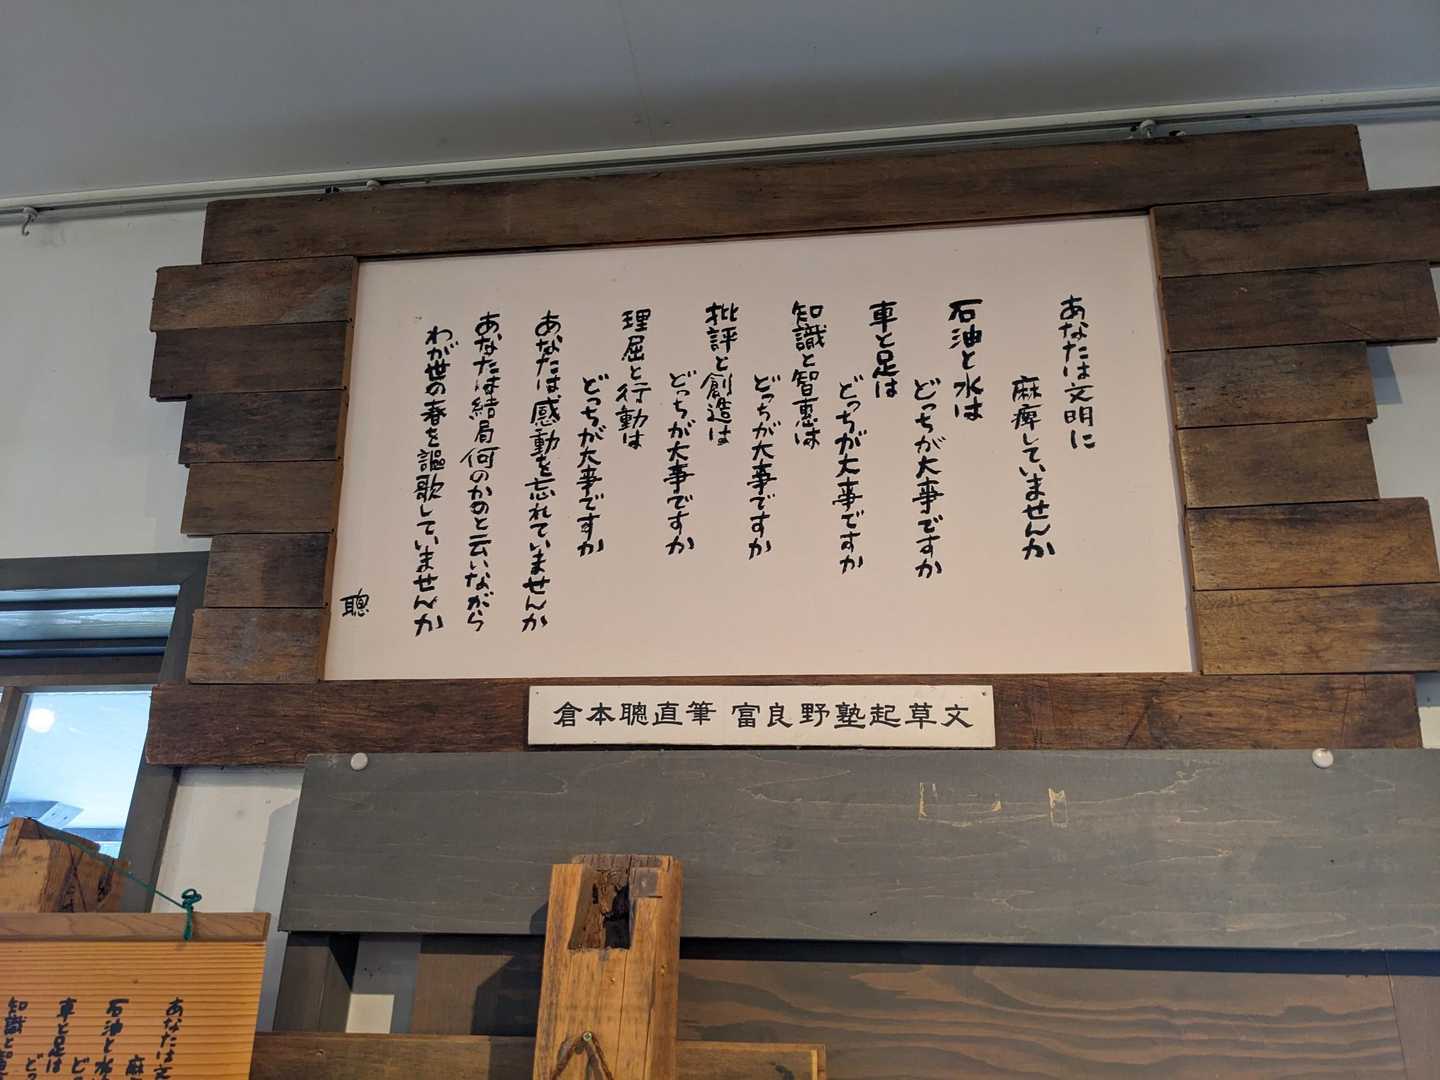 あなたは文明に
麻痺していませんか
石油と水は
どっちが大事ですか
車と足は
どっちが大事ですか
知識と智恵は
どっちが大事ですか
批評と創造は
どっちが大事ですか
理屈と行動は
どっちが大事ですか
あなたは感動を忘れていませんか
あなたは結局何のかのと云いながら
わが世の春を謳歌していませんか
聰
倉本聰直筆 富良野塾起草文
あなたは文
麻
石油と水
ど
車と足は
ど
知識と智